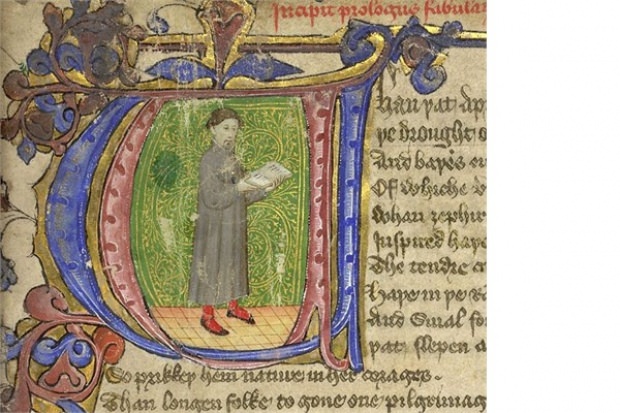 Incipit prologus fabular
Whan þat apr
þe drought o
And baþes eu
Of whiche v
Whan zephir
Inspired haþe
The tendre c
Haþe in þe R
And Smal fo
þat slepen a
So prikkeþ hem nature in her corages .
Than longen folke to gone one pilgrimag